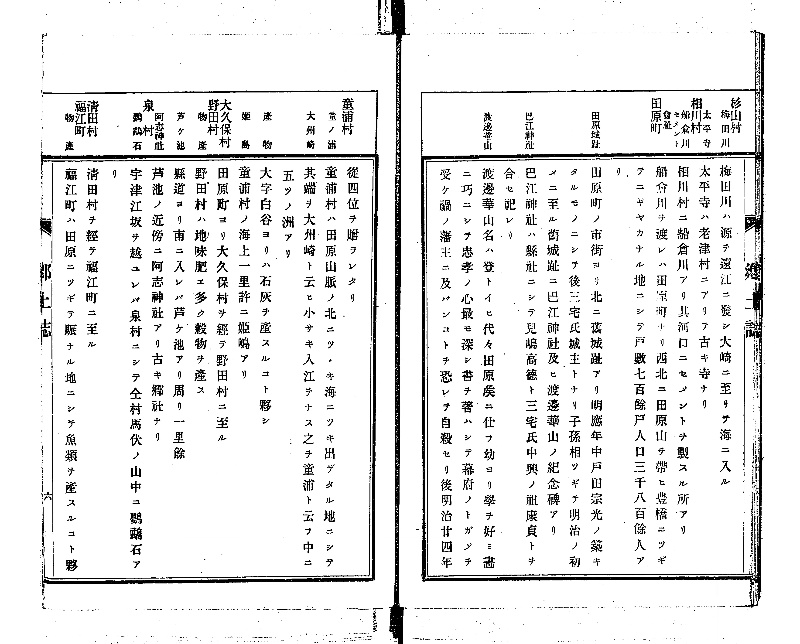 杉山村
梅田川
太平寺
相川村
船倉川
セメント
會社
田原町
田原城趾
巴江神社
渡邊華山
梅田川ハ源ヲ遠江ニ發シ大崎ニ至リテ海ニ入ル
太平寺ハ老津村ニアリテ古キ寺ナリ
相川村ニ船倉川アリ其河口ニセメントヲ製スル所アリ
船倉川ヲ渡レハ田原町ナリ西北ニ田原山ヲ帶ヒ豊橋ニツギ
テニギヤカナル地ニシテ戸數七百餘戸人口三千八百餘人ア
リ
田原町ノ市街ヨリ北ニ舊城趾アリ明應年中戸田宗光ノ築キ
タルモノニシテ後三宅氏城主トナリ子孫相ツギテ明治ノ初
メニ至ル舊城趾ニ巴江神社及ヒ渡邊華山ノ紀念碑アリ
巴江神社ハ縣社ニシテ兒嶋高德ト三宅氏中興ノ祖康貞トヲ
合セ祀レリ
渡邊華山名ハ登トイヒ代々田原矦ニ仕フ幼ヨリ學ヲ好ミ畵
ニ巧ニシテ忠孝ノ心最モ深シ書ヲ著ハシテ幕府ノトガメヲ
受ケ禍ノ藩主ニ及バンコトヲ恐レテ自殺セリ後明治廿四年
鄕土誌
童浦村
童ノ浦
大州崎
產物
姬島
大久保村
野田村
物產
芦ケ池
阿志神社
泉村
鸚鵡石
清田村
福江町
物產
從四位ヲ贈ラレタリ
童浦村ハ田原山脈ノ北ニツヾキ海ニツキ出デタル地ニシテ
其端ヲ大州崎ト云ヒ小サキ入江ヲナス之ヲ童浦ト云フ中ニ
五ツノ洲アリ
大字白谷ヨリハ石灰ヲ產スルコト夥シ
童浦村ノ海上一里許ニ姬嶋アリ
田原町ヨリ大久保村ヲ經テ野田村ニ至ル
野田村ハ地味肥エ多ク穀物ヲ產ス
縣道ヨリ南ニ入レバ芦ケ池アリ周リ一里餘
芦池ノ近傍ニ阿志神社アリ古キ鄕社ナリ
宇津江坂ヲ越ユレバ泉村ニシテ仝村馬伏ノ山中ニ鸚鵡石ア
リ
清田村ヲ經テ福江町ニ至ル
福江町ハ田原ニツギテ賑ナル地ニシテ魚類ヲ產スルコト夥
鄕土誌
六